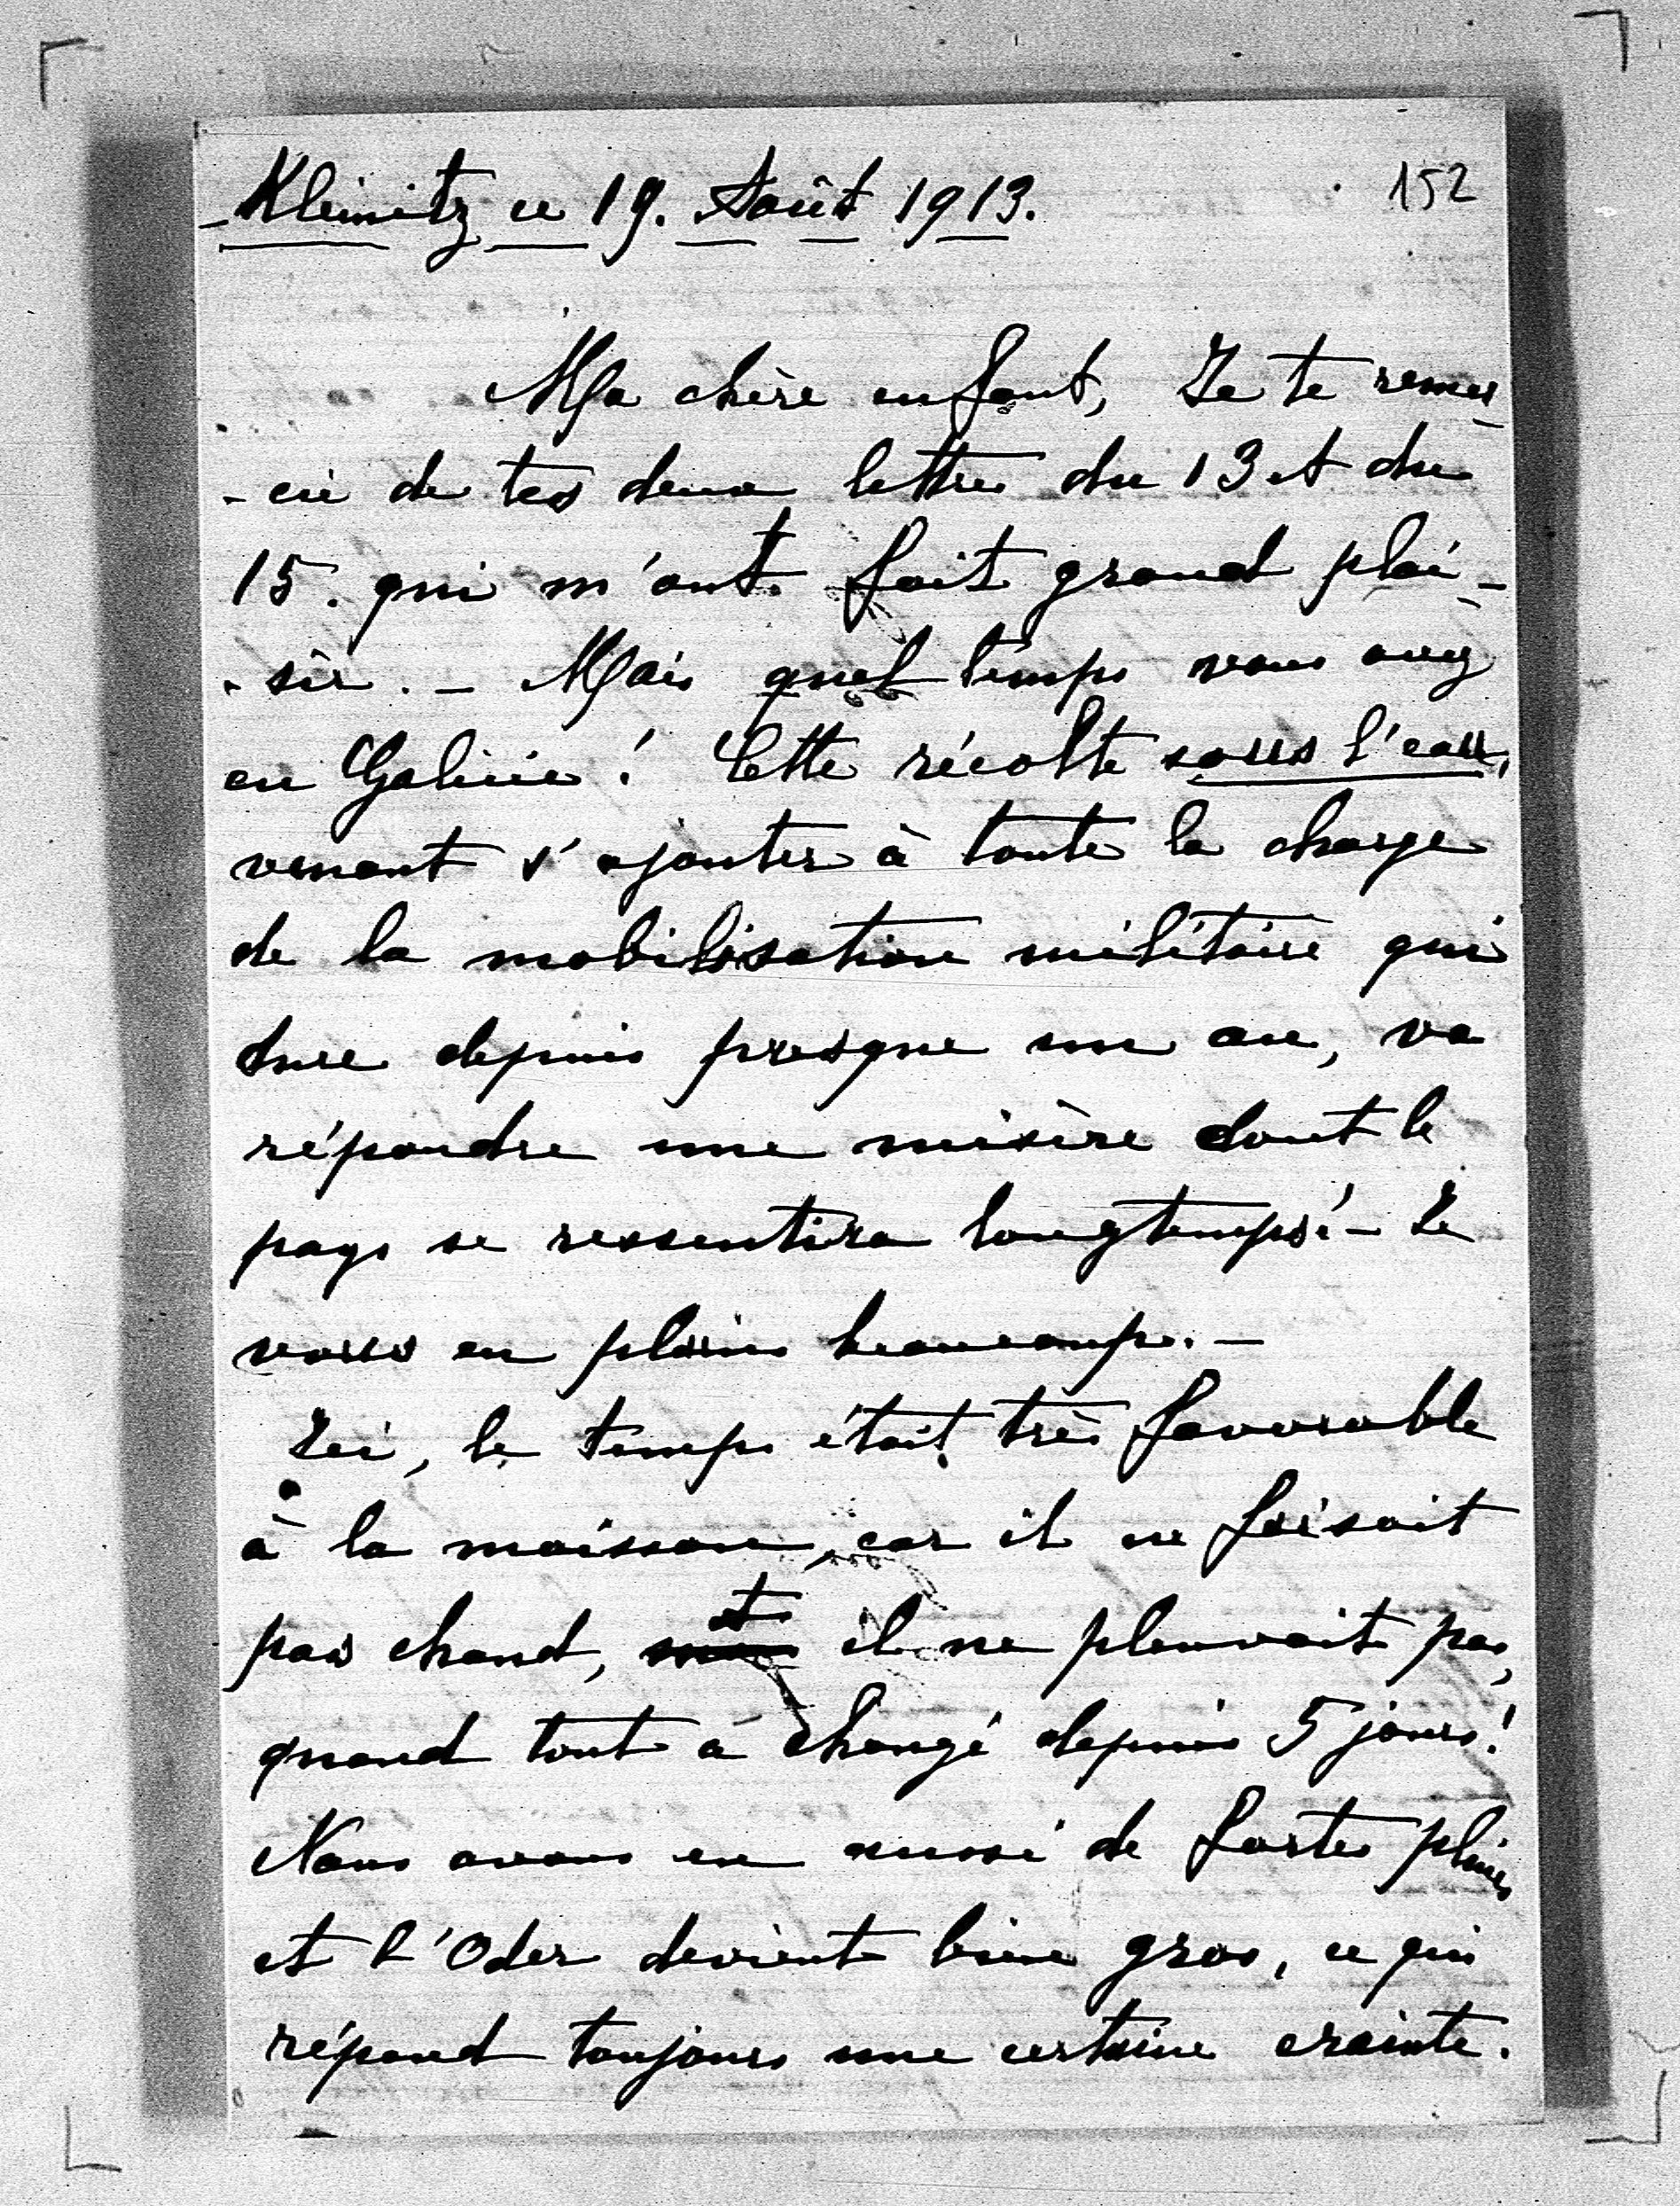 Kleinitz ce 19. Août 1913.
152
Ma chère enfant, Je te remer-
-cie de tes deux lettres du 13 et du
15. qui m'ont fait grand plai-
-sir. - Mais quel temps vous avez
en Galicie! Cette récolte sous l'eau,
venant s'ajouter à toute la charge
de la mobilisation militaire qui
dure depuis presque un an, va
répandre une misère dont le
pays se ressentira longtemps! - Je
vous en plains beaucoup. -
Ici, le temps était très favorable
à la moisson, car il ne faisait
pas chaud, et il ne pleuvait pas,
quand tout a changé depuis 5 jours!
Nous avons eu aussi de fortes pluies
et l'Oder devient bien gros, ce qui
répand toujours une certaine crainte.